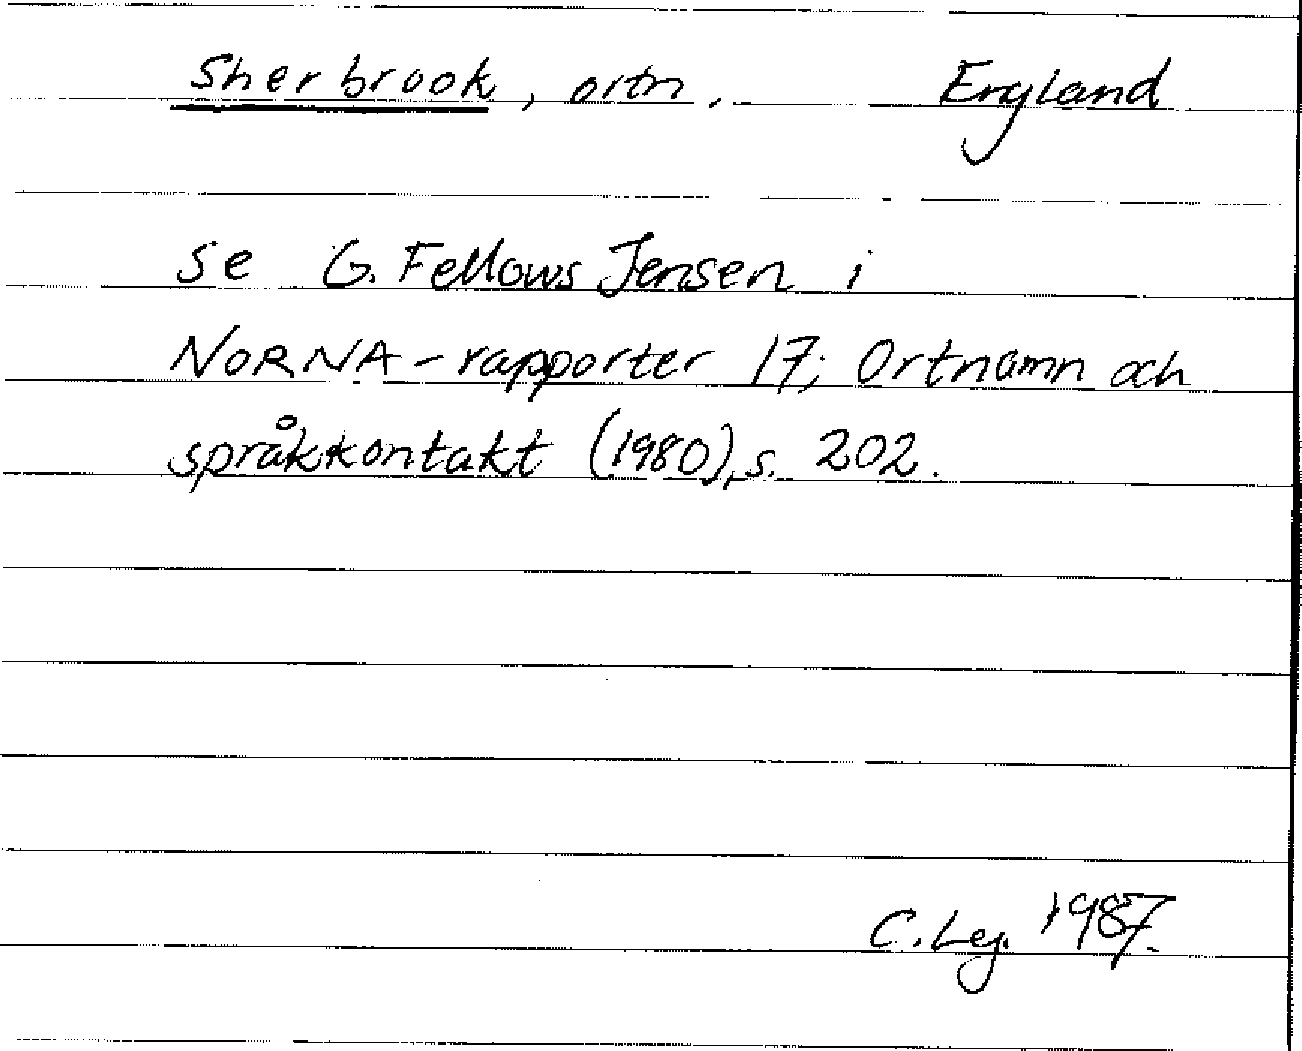 Sherbrook, ortn. England
se G. Fellows Jensen i
NORNA-rapporter 17; Ortnamn och
språkkontakt (1980), s. 202.
C. Leg. 1987.